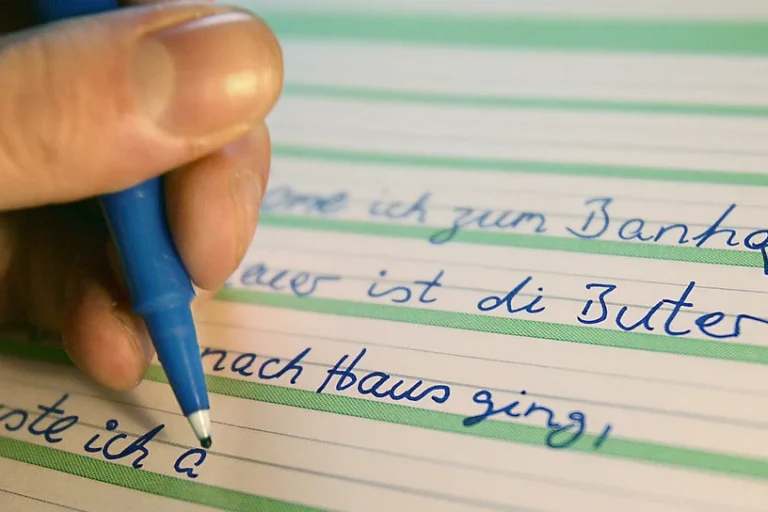 ich zum Banho
ist di Buter
nach Haus ging,
ste ich a